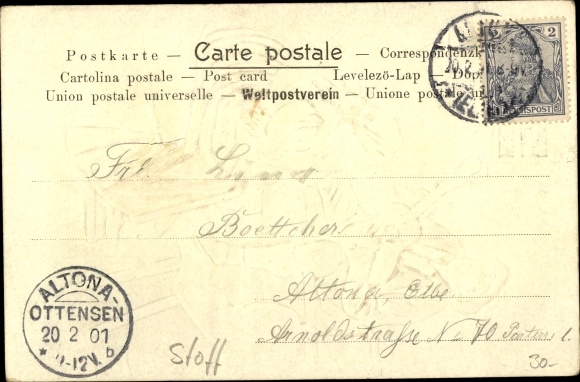 Postkarte — Carte postale — Correspondenzk
Cartolina postale — Post card Levelező-Lap — Dop
Union postale universelle — Weltpostverein — Unione posta
2 2
REICHSPOST
Frl.
Boettcher
Altona, Elbe
Arnoldstrasse No 70
ALTONA-
OTTENSEN
20 2 01
* 11-12V. b
Stoff
30.-